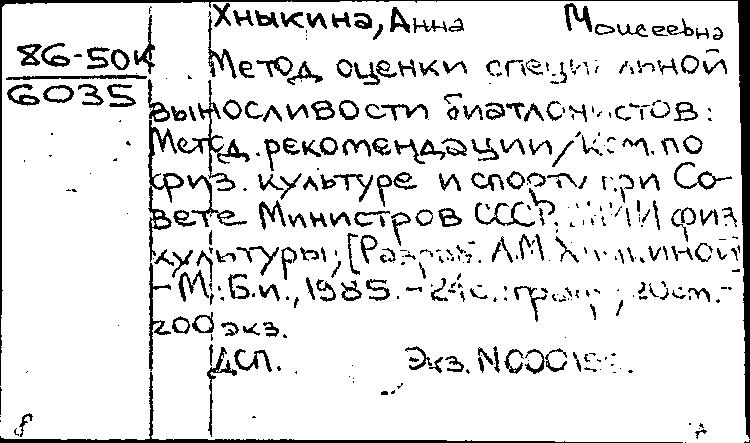 Хныкина, Анна Моисеевна
86-50к
6035
Метод оценки специальной
выносливости биатлонистов:
Метод. рекомендации / Ком. по
физ. культуре и спорту при Со-
вете Министров СССР, физ.
культуры; [Разраб. А.М. Хныкиной]
-М.: Б.и., 1985. - 24с.: граф.; 20см.-
200 экз.
ДСП. Экз. N